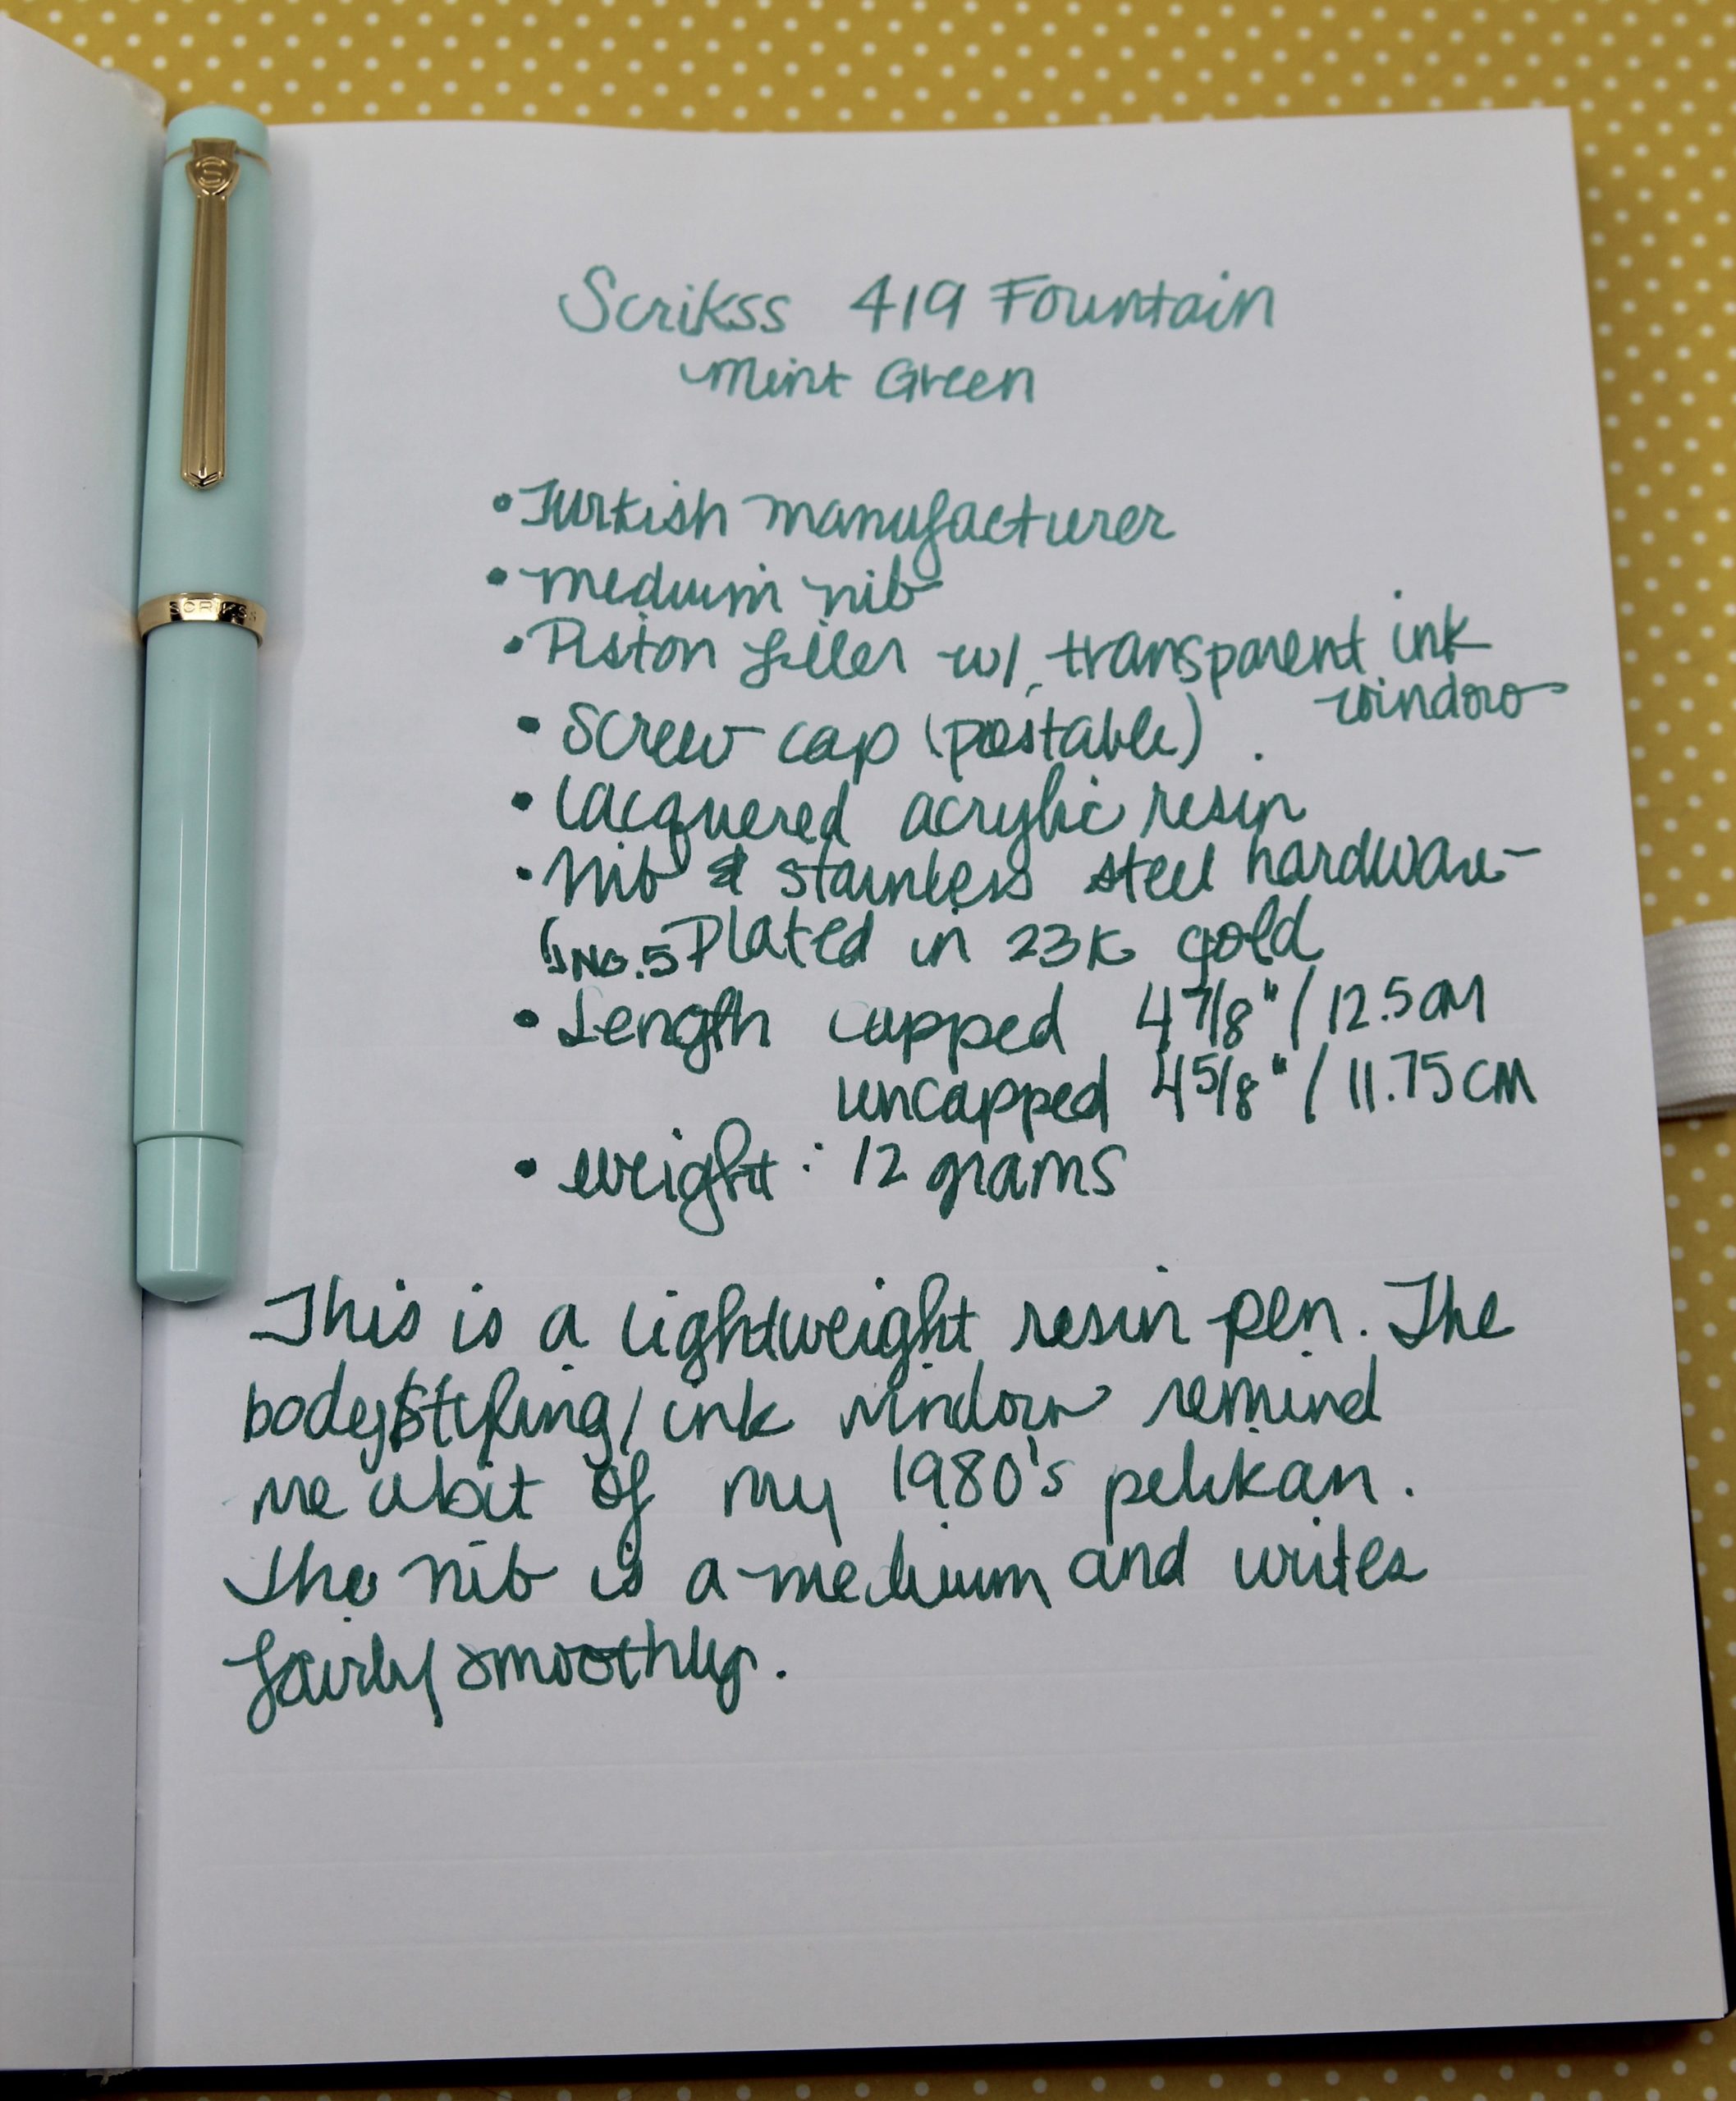 S
SCRIKSS
Scrikss 419 Fountain
Mint Green
• Turkish manufacturer
• medium nib
• Piston filler w/ transparent ink
window
• Screw cap (postable)
• Lacquered acrylic resin
• Nib & stainless steel hardware -
(No. 5 Plated in 23K gold
• Length capped 4 7/8" / 12.5 cm
uncapped 4 5/8" / 11.75 cm
• weight: 12 grams
This is a lightweight resin pen. The
body styling / ink window remind
me a bit of my 1980's pelikan.
The nib is a medium and writes
fairly smoothly.